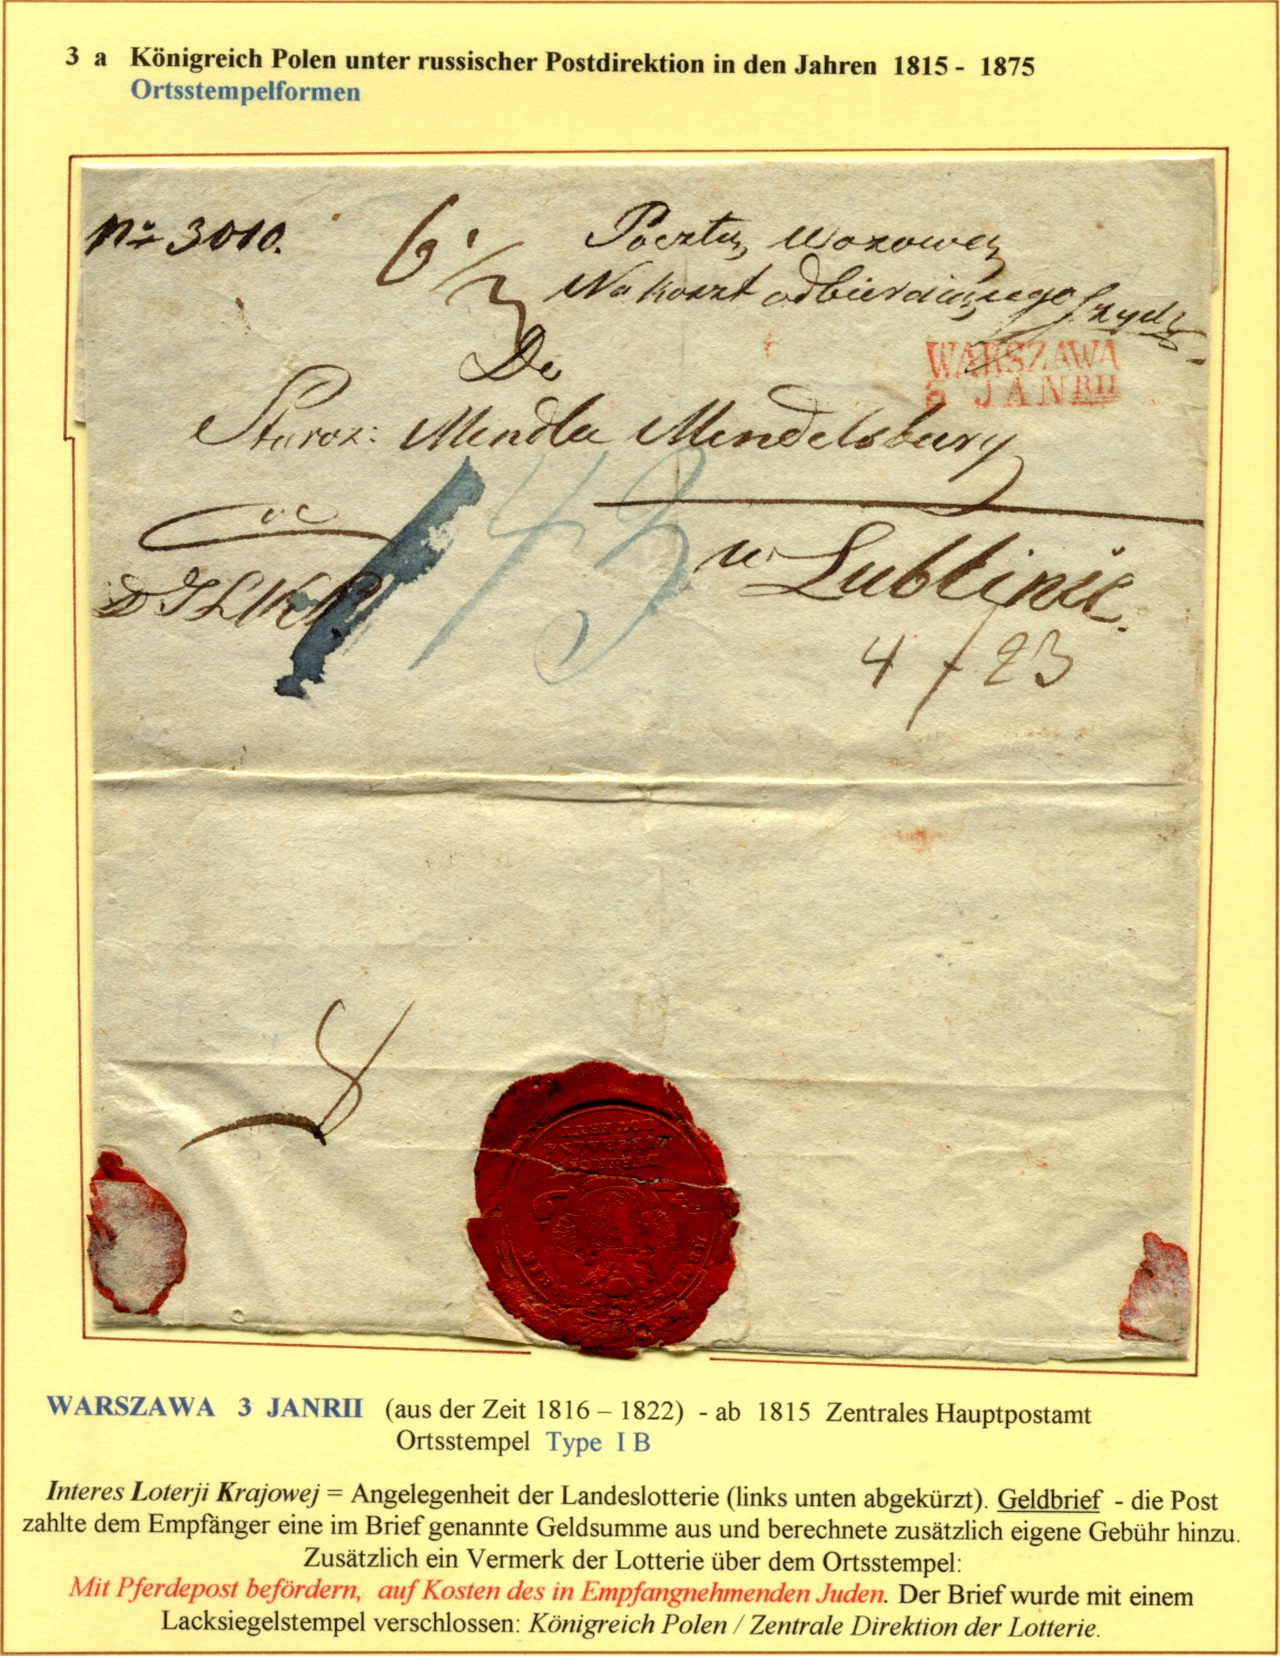 3 a Königreich Polen unter russischer Postdirektion in den Jahren 1815 - 1875
Ortsstempelformen
No 3010.
Pocztą wozową
Na koszt odbieraiącego
Do
WARSZAWA
3 JANRII
Staroz: Mendla Mendelsburg
w Lublinie.
43
4 / 23
WARSZAWA 3 JANRII (aus der Zeit 1816 – 1822) - ab 1815 Zentrales Hauptpostamt
Ortsstempel Type I B
Interes Loterji Krajowej = Angelegenheit der Landeslotterie (links unten abgekürzt). Geldbrief - die Post
zahlte dem Empfänger eine im Brief genannte Geldsumme aus und berechnete zusätzlich eigene Gebühr hinzu.
Zusätzlich ein Vermerk der Lotterie über dem Ortsstempel:
Mit Pferdepost befördern, auf Kosten des in Empfangnehmenden Juden. Der Brief wurde mit einem
Lacksiegelstempel verschlossen: Königreich Polen / Zentrale Direktion der Lotterie.